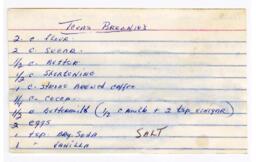 Texas Brownies
2 c. flour
2 c. sugar
1/2 c. butter
1/2 c. shortening
1 c. strong brewed coffee
1/4 c. cocoa
1/2 c. buttermilk (1/2 c milk + 2 tsp. vinegar)
2 eggs
1 tsp. bkg. soda SALT
1 " vanilla